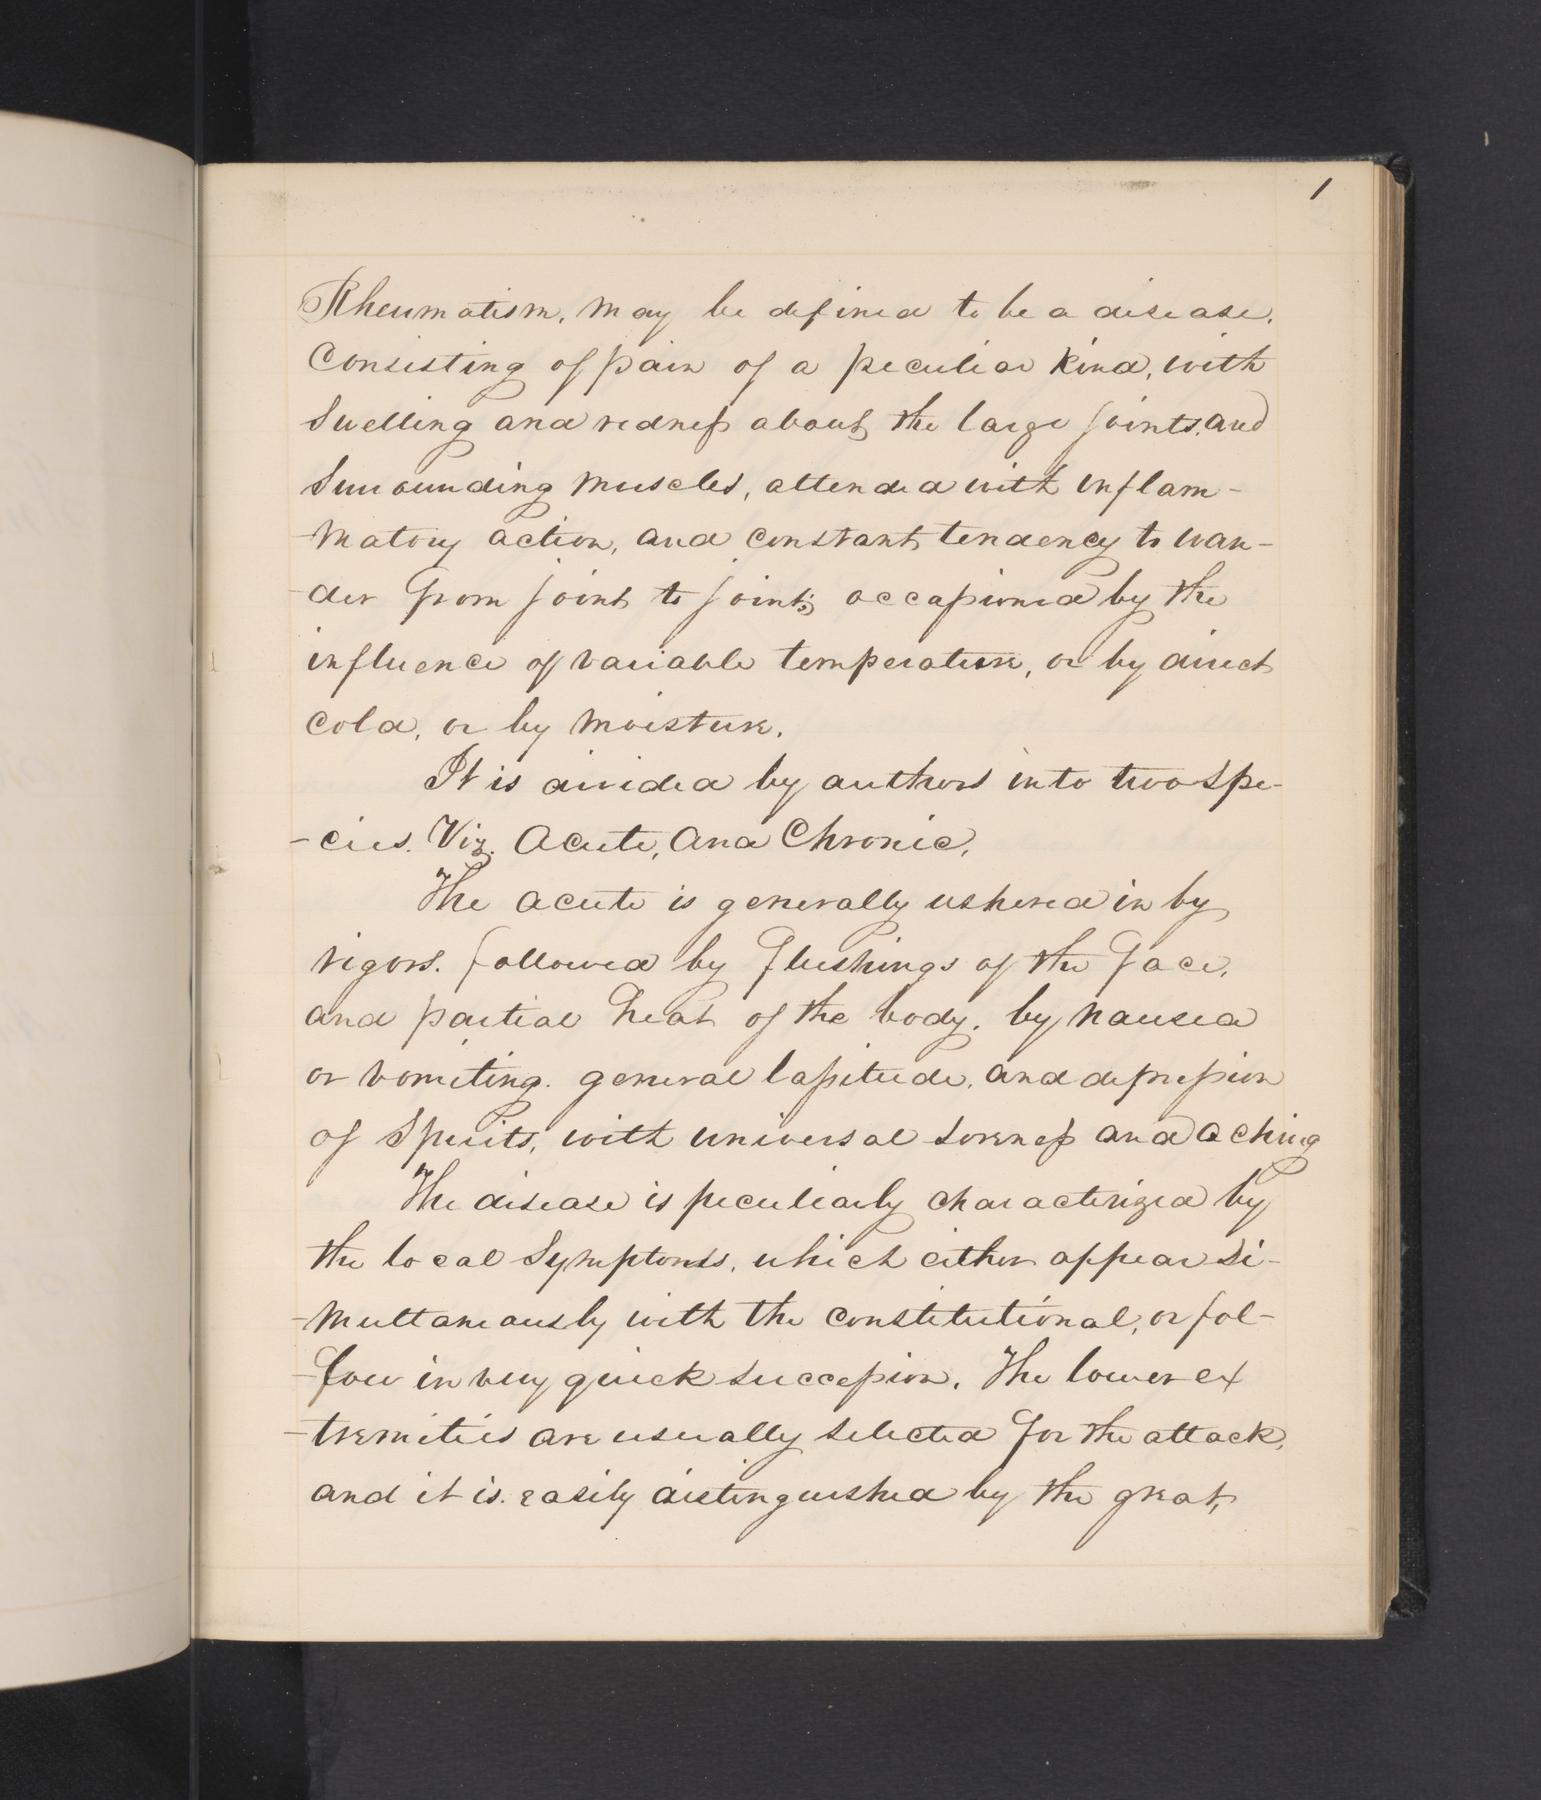 1
Rheumatism, may be defined to be a disease.
Consisting of pain of a peculiar kind, with
Swelling and redness about the large joints, and
Surrounding muscles, attended with inflam-
-matory action, and constant tendency to wan-
-der from joint to joint; occasioned by the
influence of variable temperature, or by direct
cold, or by moisture.
It is divided by authors into two Spe-
-cies. Viz. Acute, and Chronic.
The acute is generally ushered in by
rigors. followed by flushings of the face,
and partial heat of the body. by nausea
or vomiting. general lassitude, and depression
of Spirits, with universal soreness and aching
The disease is peculiarly characterized by
the local Symptoms, which either appear Si-
-multaneously with the constitutional, or fol-
-low in very quick succession. The lower ex
-tremities are usually selected for the attack,
and it is easily distinguished by the great,